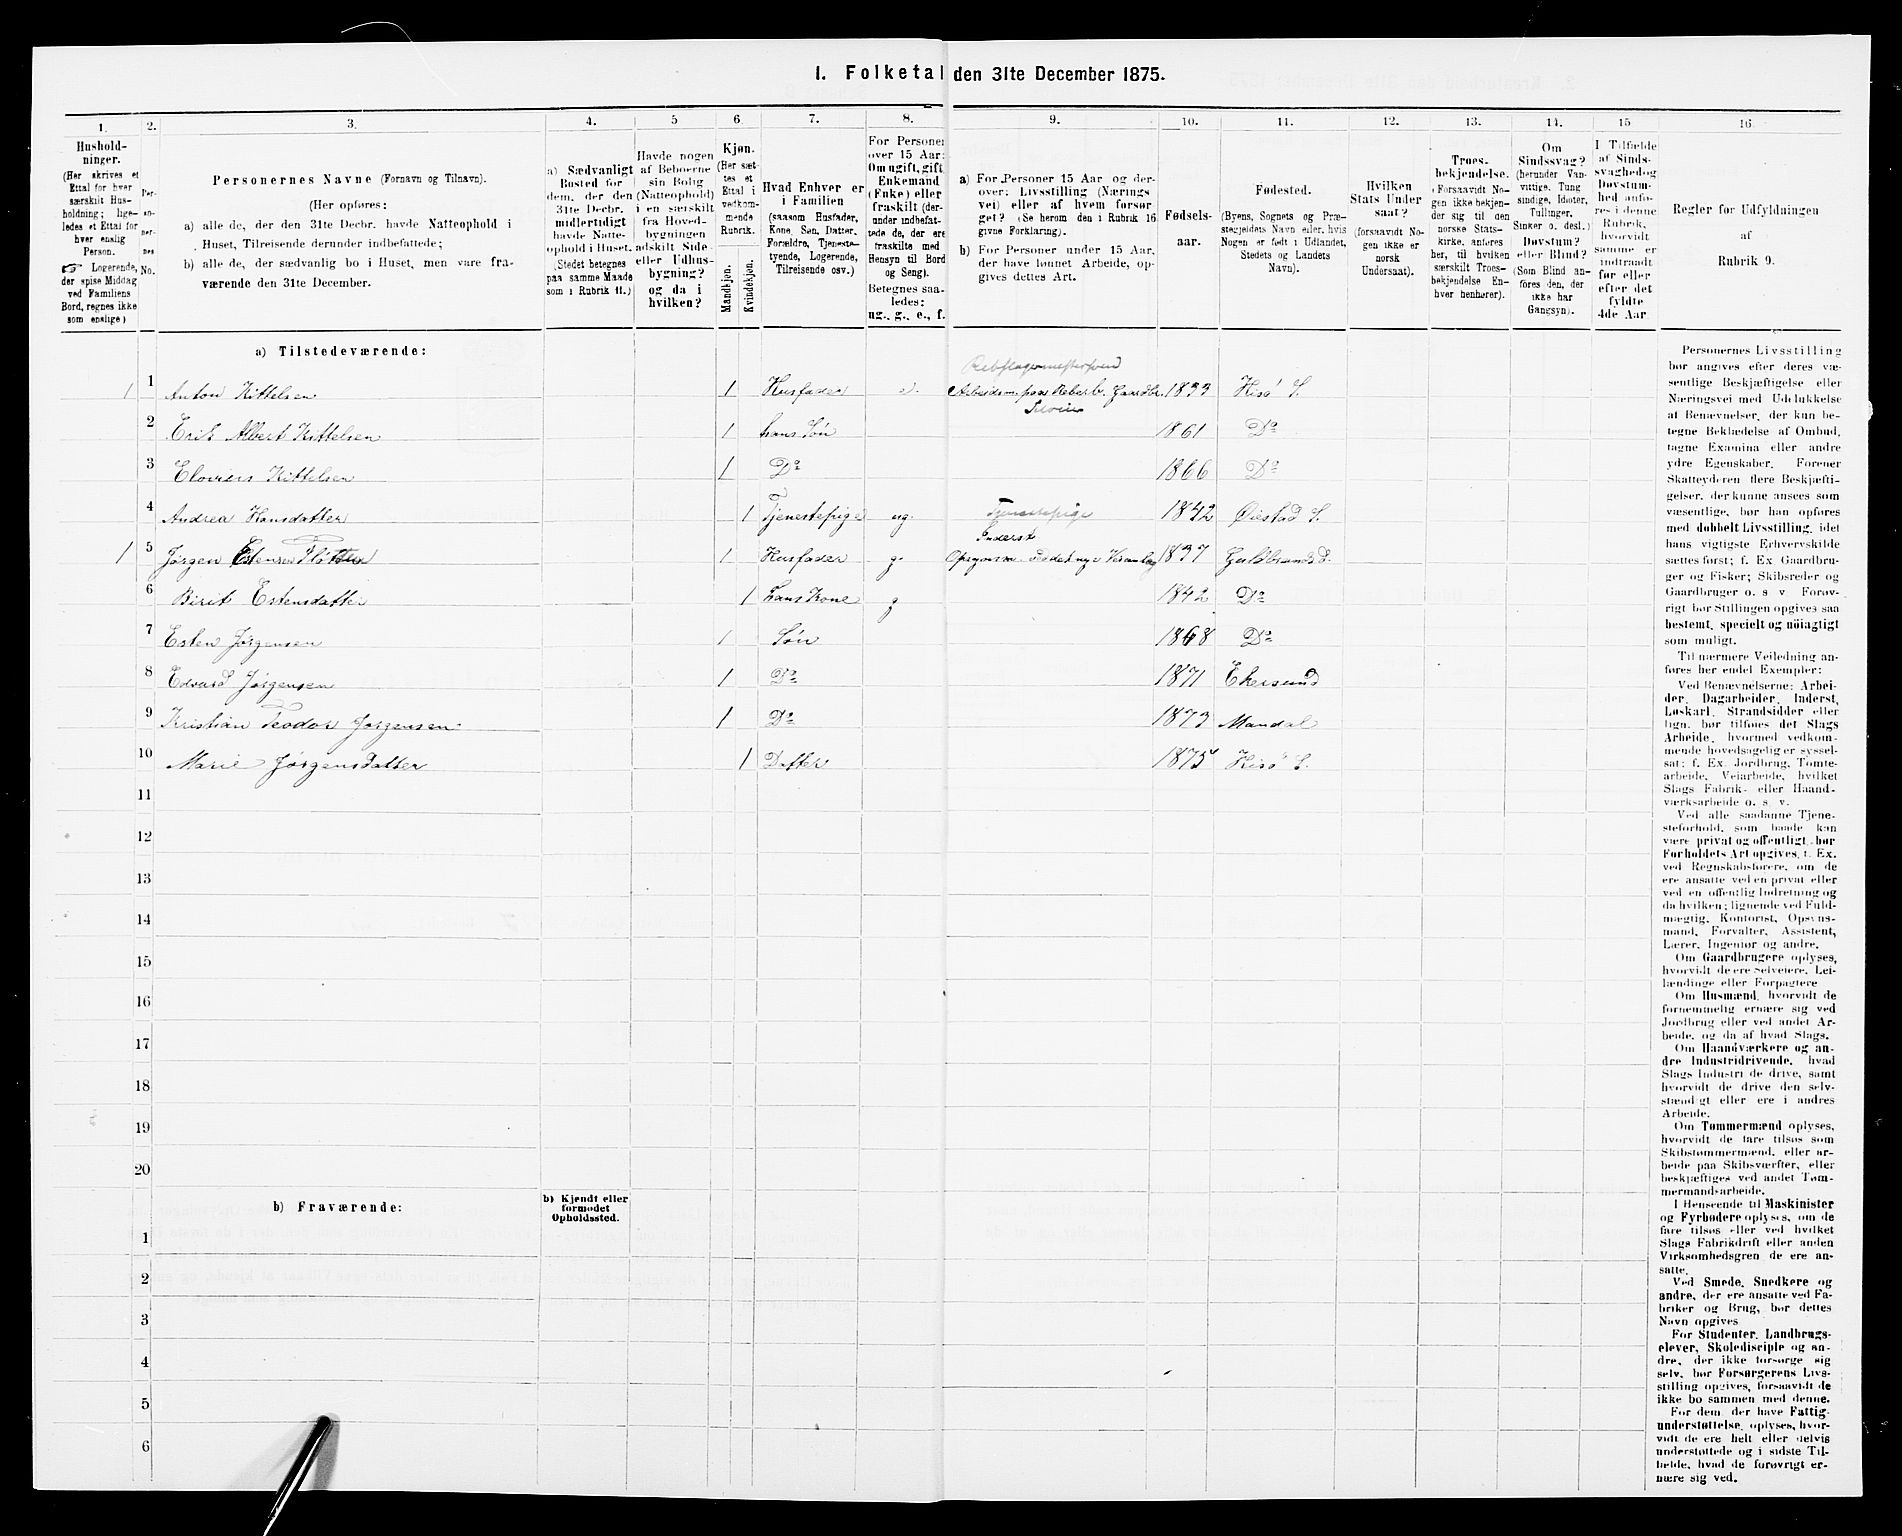 1. Folketal den 31te December 1875.
1. 2. 3. 4. 5 6. 7. 8. 9. 10. 11. 12. 13. 14. 15 16
Hushold-
ninger.
(Her skrives et
Ettal for hver
særskilt Hus-
holdning; lige-
ledes et Ettal for
hver enslig
Person.
☞ Logerende,
der spise Middag
ved Familiens
Bord, regnes ikke
som enslige)
Per-
so-
ner-
nes
No.
Personernes Navne (Fornavn og Tilnavn).
(Her opføres:
a) alle de, der den 31te Decbr. havde Natteophold i
Huset, Tilreisende derunder indbefattede;
b) alle de, der sædvanlig bo i Huset, men vare fra-
værende den 31te December.
a) Sædvanligt
Bosted for
dem, der den
31te Decbr.
midlertidigt
havde Natte-
ophold i Huset.
(Stedet betegnes
paa samme Maade
som i Rubrik 11.)
Havde nogen
af Beboerne
sin Bolig
(Natteophold)
i en særskilt
fra Hoved-
bygningen
adskilt Side-
eller Udhus-
bygning?
og da i
hvilken?
Kjøn.
(Her sæt-
tes et
Ettal i
vedkom-
mende
Rubrik.
Mandkjøn.
Kvindekjøn.
Hvad Enhver er
i Familien
(saasom Husfader,
Kone, Søn, Datter,
Forældre, Tjeneste-
tyende, Logerende,
Tilreisende osv.)
For Personer
over 15 Aar:
Om ugift, gift,
Enkemand
(Enke) eller
fraskilt (der-
under indbefat-
tede de, der ere
fraskilte med
Hensyn til Bord
og Seng).
Betegnes saa-
ledes:
ug., g., e., f.
a) For Personer 15 Aar og der-
over: Livsstilling (Nærings-
vei) eller af hvem forsør-
get? (Se herom den i Rubrik 16
givne Forklaring).
b) For Personer under 15 Aar,
der have lønnet Arbeide, op-
gives dettes Art.
Fødsels-
aar.
Fødested.
(Byens, Sognets og Præ-
stegjeldets Navn eller, hvis
Nogen er født i Udlandet,
Stedets og Landets
Navn).
Hvilken
Stats Under
saat?
(forsaavidt No-
gen ikke er
norsk
Undersaat).
Troes-
bekjendelse.
(Forsaavidt No-
gen ikke bekjen-
der sig til den
norske Stats-
kirke, anføres
her, til hvilken
særskilt Troes-
bekjendelse En-
hver henhører).
Om
Sindssvag?
(herunder Van-
vittige, Tung
sindige, Idioter,
Tullinger,
Sinker o. desl.)
Døvstum?
eller Blind?
(Som Blind an-
føres den, der
ikke har
Gangsyn).
I Tilfælde
af Sinds-
svaghed og
Døvstum-
hed anfø-
res i denne
Rubrik,
hvorvidt
samme er
indtraadt
før eller
efter det
fyldte
4de Aar
Regler for Udfyldningen
af
Rubrik 9.
a) Tilstedeværende:
1 1 Anton Kittelsen 1 Husfader e. Arbeidsm. paa Reberb. Gaardbr. 1833 Hisö S.
Selveier
2 Erik Albert Kittelsen 1 hans Sön 1861 Do
3 Elovies Kittelsen 1 Do 1866 Do
4 Andrea Hansdatter 1 Tjenestepige ug. Tjenestepige 1842 Öiestad S.
Inderst
1 5 Jørgen Estensen 1 Husfader g. 1837 Guldbrands d.
6 Birit Estensdatter 1 hans Kone g 1842 Do
7 Esten Jörgensen 1 Sön 1868 Do
8 Edvard Jörgensen 1 Do 1871 Ekersund
9 Kristian Teodor Jörgensen 1 Do 1873 Mandal
10 Marie Jörgensdatter 1 Datter 1875 Hisö S.
11
12
13
14
15
16
17
18
19
20
b) Fraværende:
b) Kjendt eller
formodet
Opholdssted.
1
2
3
4
5
6
Personernes Livsstilling
bør angives efter deres væ-
sentlige Beskjæftigelse eller
Næringsvei med Udelukkelse
af Benævnelser, der kun be-
tegne Beklædelse af Ombud,
tagne Examina eller andre
ydre Egenskaber. Forener
Skatteyderen flere Beskjæfti-
gelser, der kunne ansees som
væsentlige, bør han opføres
med dobbelt Livsstilling, idet
hans vigtigste Erhvervskilde
sættes først; f. Ex Gaardbru-
ger og Fisker; Skibsreder og
Gaardbruger o. s v. Forøv-
rigt bør Stillingen opgives saa
bestemt, specielt og nöiagtigt
som muligt.
Til nærmere Veiledning an-
føres her endel Exempler:
Ved Benævnelserne: Arbei-
der, Dagarbeider, Inderst,
Løskarl, Strandsidder eller
lign. bør tilføies det Slags
Arbeide, hvormed vedkom-
mende hovedsagelig er syssel-
sat; f. Ex. Jordbrug, Tomte-
arbeide, Veiarbeide, hvilket
Slags Fabrik- eller Haand-
værksarbeide o. s. v.
Ved alle saadanne Tjene-
steforhold, som baade kan
være privat og offentligt, bør
Forholdets Art opgives, t. Ex.
ved Regnskabsførere, om de
ere ansatte ved en privat eller
ved en offentlig Indretning og
da hvilken; lignende ved Fuld-
mægtig, Kontorist, Opsyns-
mand, Forvalter, Assistent,
Lærer, Ingeniør og andre.
Om Gaardbrugere oplyses,
hvorvidt de ere Selveiere, Lei-
lændinge eller Forpagtere
Om Husmænd, hvorvidt de
fornemmelig ernære sig ved
Jordbrug eller ved andet Ar-
beide, og da af hvad Slags.
Om Haandværkere og an-
dre Industridrivende, hvad
Slags Industri de drive, samt
hvorvidt de drive den selv-
stændigt eller ere i andres
Arbeide.
Om Tømmermænd oplyses,
hvorvidt de fare tilsøs som
Skibstømmermænd, eller ar-
beide paa Skibsværfter, eller
beskjæftiges ved andet Tøm-
mermandsarbeide.
I Henseende til Maskinister
og Fyrbødere oplyses, om de
fare tilsøs eller ved hvilket
Slags Fabrikdrift eller anden
Virksomhedsgren de ere an-
satte.
Ved Smede, Snedkere og
andre, der ere ansatte ved Fa-
briker og Brug, bør dettes
Navn opgives
For Studenter, Landbrugs-
elever, Skoledisciple og an-
dre, der ikke forsørge sig
selv, bør Forsørgerens Livs-
stilling opgives, forsaavidt de
ikke bo sammen med denne.
For dem, der have Fattig-
understøttelse, oplyses, hvor-
vidt de ere helt eller delvis
understøttede og i sidste Til-
fælde, hvad de forøvrigt er-
nære sig ved.